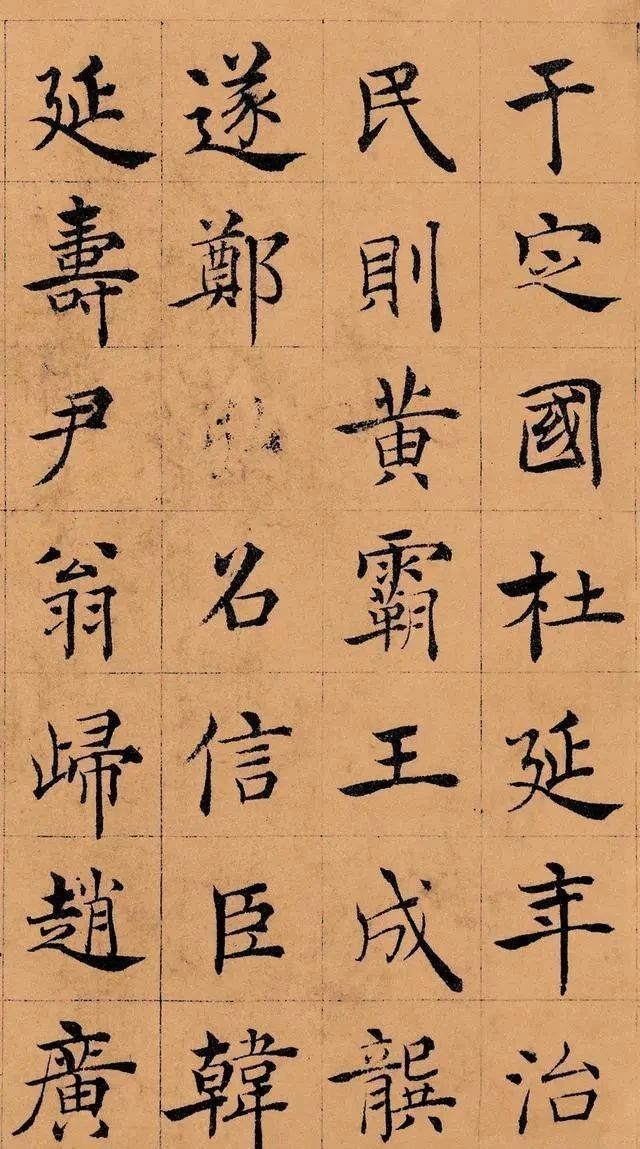 于定國杜延年治
民則黄霸王成龔
遂鄭召信臣韓
延壽尹翁歸趙廣